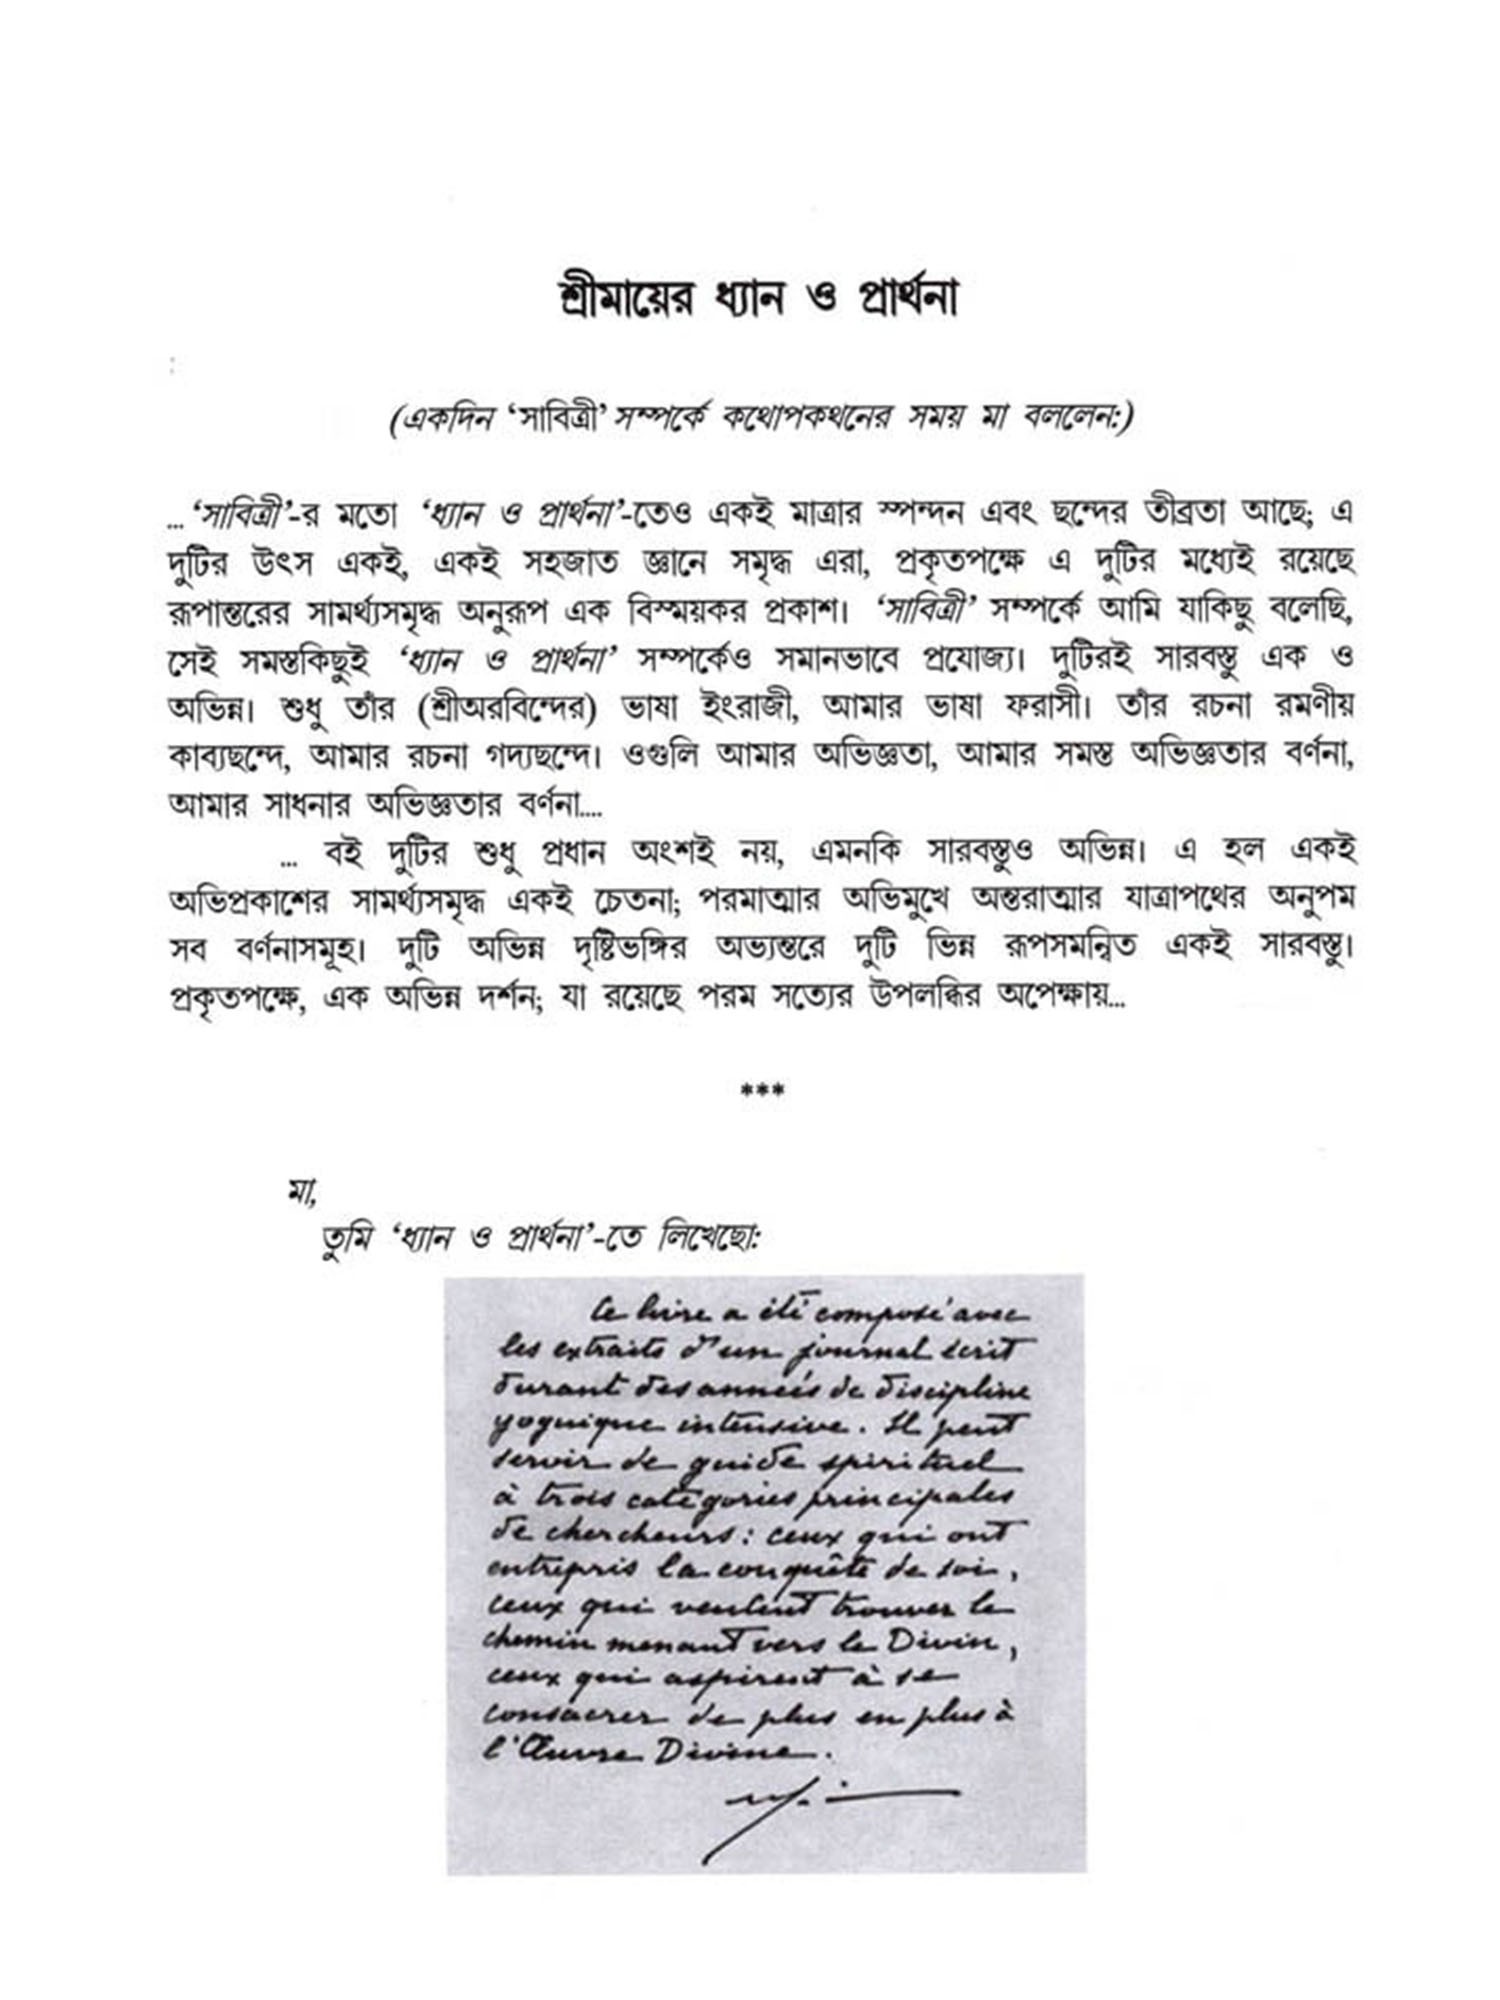 শ্রীমায়ের ধ্যান ও প্রার্থনা
(একদিন ‘সাবিত্রী’ সম্পর্কে কথোপকথনের সময় মা বললেন:)
... ‘সাবিত্রী’-র মতো ‘ধ্যান ও প্রার্থনা’-তেও একই মাত্রার স্পন্দন এবং ছন্দের তীব্রতা আছে; এ
দুটির উৎস একই, একই সহজাত জ্ঞানে সমৃদ্ধ এরা, প্রকৃতপক্ষে এ দুটির মধ্যেই রয়েছে
রূপান্তরের সামর্থ্যসমৃদ্ধ অনুরূপ এক বিস্ময়কর প্রকাশ। ‘সাবিত্রী’ সম্পর্কে আমি যাকিছু বলেছি,
সেই সমস্তকিছুই ‘ধ্যান ও প্রার্থনা’ সম্পর্কেও সমানভাবে প্রযোজ্য। দুটিরই সারবস্তু এক ও
অভিন্ন। শুধু তাঁর (শ্রীঅরবিন্দের) ভাষা ইংরাজী, আমার ভাষা ফরাসী। তাঁর রচনা রমণীয়
কাব্যছন্দে, আমার রচনা গদ্যছন্দে। ওগুলি আমার অভিজ্ঞতা, আমার সমস্ত অভিজ্ঞতার বর্ণনা,
আমার সাধনার অভিজ্ঞতার বর্ণনা....
... বই দুটির শুধু প্রধান অংশই নয়, এমনকি সারবস্তুও অভিন্ন। এ হল একই
অভিপ্রকাশের সামর্থ্যসমৃদ্ধ একই চেতনা; পরমাত্মার অভিমুখে অন্তরাত্মার যাত্রাপথের অনুপম
সব বর্ণনাসমূহ। দুটি অভিন্ন দৃষ্টিভঙ্গির অভ্যন্তরে দুটি ভিন্ন রূপসমন্বিত একই সারবস্তু।
প্রকৃতপক্ষে, এক অভিন্ন দর্শন; যা রয়েছে পরম সত্যের উপলব্ধির অপেক্ষায়...
***
মা,
তুমি ‘ধ্যান ও প্রার্থনা’-তে লিখেছো:
Ce livre a été composé avec
les extraits d'un journal écrit
durant des années de discipline
yoguique intensive. Il peut
servir de guide spirituel
à trois catégories principales
de chercheurs: ceux qui ont
entrepris la conquête de soi,
ceux qui veulent trouver le
chemin menant vers le Divin,
ceux qui aspirent à se
consacrer de plus en plus à
l'Œuvre Divine.